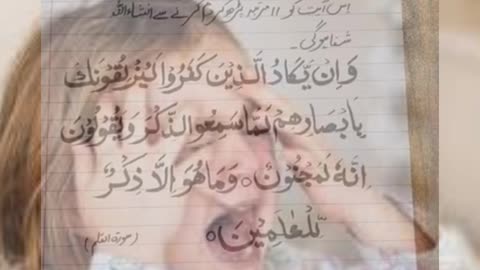 اس آیت کو 11 مرتبہ پڑھ کر دم کرنے سے انشاءاللہ
شفا ہوگی۔
وَاِنْ یَّکَادُ الَّذِیْنَ کَفَرُوْا لَیُزْلِقُوْنَكَ
بِاَبْصَارِهِمْ لَمَّا سَمِعُوا الذِّکْرَ وَیَقُوْلُوْنَ
اِنَّهٗ لَمَجْنُوْنٌ○ وَمَا هُوَ اِلَّا ذِکْرٌ
لِّلْعٰلَمِیْنَ○
(سورۃ القلم)